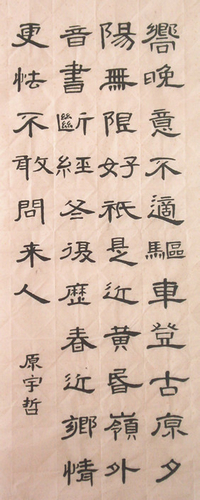 嚮晚意不適驅車登古原夕
陽無限好祇是近黄昏嶺外
音書斷經冬復歷春近鄉情
更怯不敢問来人
原宇哲